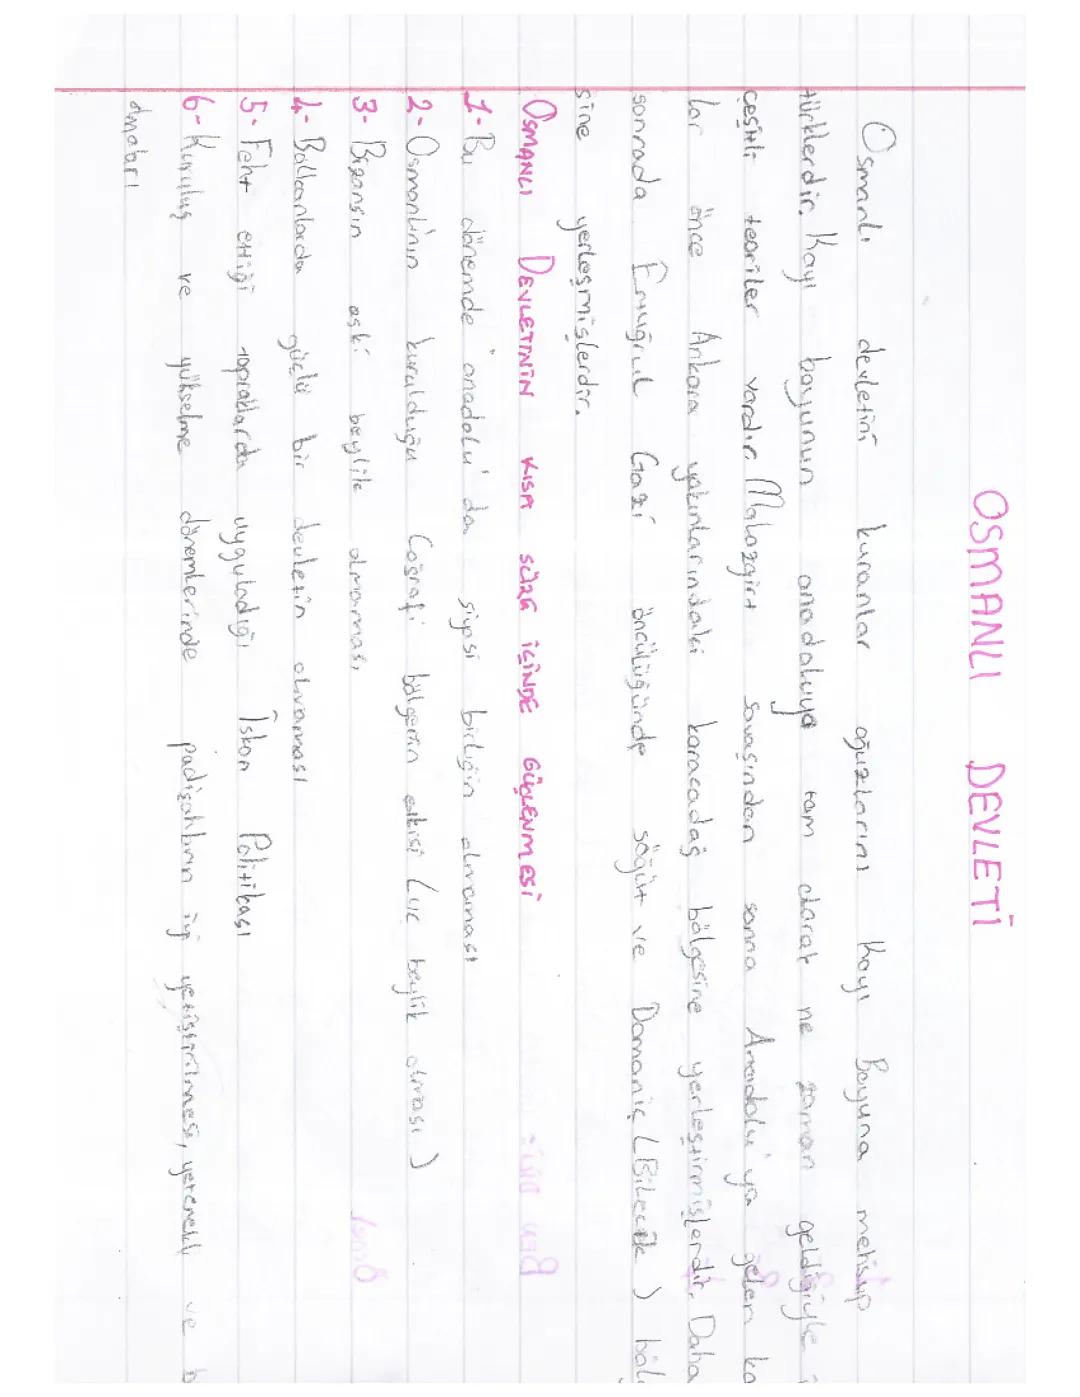 OSMANLI DEVLETİ
Osmanlı devletini kuranlar oğuzların Kayı Boyuna mensup
türklerdir. Kayı boyunun anadoluya tam olarak ne zaman geldiğiyle
çeşitli teoriler vardır. Malazgirt savaşından sonra Anadolu'ya gelen ka
lar önce Ankara yakınlarındaki karacadağ bölgesine yerleştirmişlerdir. Daha
sonrada Ertuğrul Gazi öncülüğünde söğüt ve Domaniç (Bilecik) böl
sine yerleşmişlerdir.
OSMANLI DEVLETİNİN KISA SÜRE İÇİNDE GÜÇLENMESİ
1- Bu dönemde anadolu'da siyasi birliğin olmaması
2- Osmanlının kurulduğu Coğrafi bölgenin etkisi (uc beylik olması)
3- Bizansın eski beylik olmaması
4- Balkanlarda güçlü bir devletin olmaması
5- Feht ettiği topraklarda uyguladığı İskan Politikası
6- Kuruluş ve yükselme dönemlerinde padişahların iyi yetiştirilmesi, yetenekli ve b
olmaları